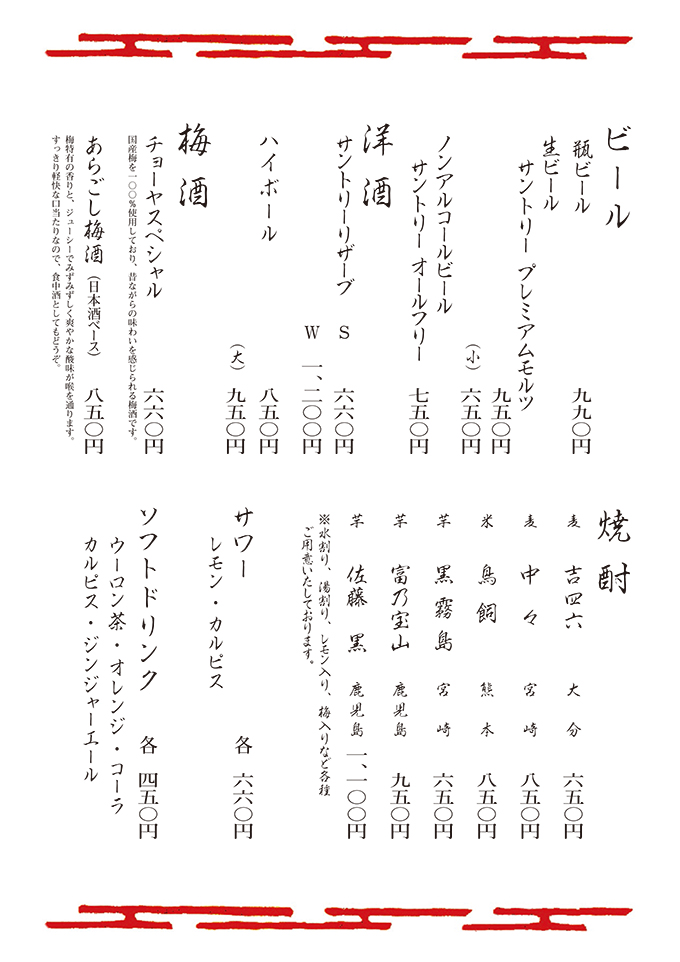 ビール
瓶ビール 九九〇円
生ビール
サントリー プレミアムモルツ
九五〇円
（小） 六五〇円
ノンアルコールビール
サントリー オールフリー 七五〇円
洋酒
サントリーリザーブ S 六六〇円
W 一、二〇〇円
ハイボール 八五〇円
（大） 九五〇円
梅酒
チョーヤスペシャル 六六〇円
国産梅を一〇〇％使用しており、昔ながらの味わいを感じられる梅酒です。
あらごし梅酒（日本酒ベース） 八五〇円
梅特有の香りと、ジューシーでみずみずしく爽やかな酸味が喉を通ります。
すっきり軽快な口当たりなので、食中酒としてもどうぞ。
焼酎
麦 吉四六 大分 六五〇円
麦 中々 宮崎 八五〇円
米 鳥飼 熊本 八五〇円
芋 黒霧島 宮崎 六五〇円
芋 富乃宝山 鹿児島 九五〇円
芋 佐藤 黒 鹿児島 一、一〇〇円
※水割り、湯割り、レモン入り、梅入りなど各種
ご用意いたしております。
サワー 各 六六〇円
レモン・カルピス
ソフトドリンク 各 四五〇円
ウーロン茶・オレンジ・コーラ
カルピス・ジンジャーエール